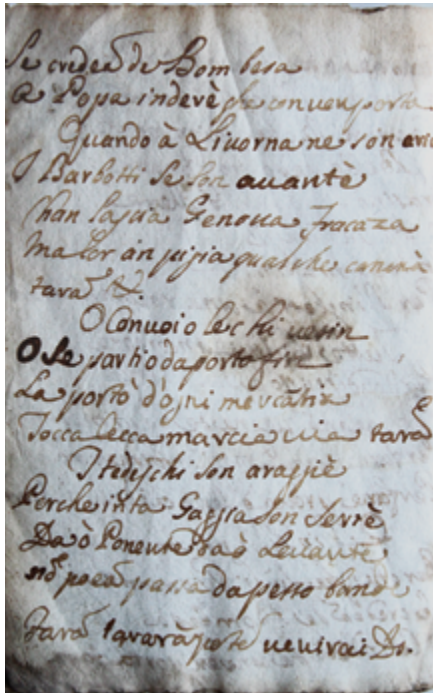 Se credeã de Bom besa
A Popa inderè ghe conven porta
Quando à Livorna ne son
I Barbotti se son avantè
han lascia Genova fracaza
Ma lor àn pijia qualche
tarã &.
O Convoio le chi vesin
O se partio da porto fin
La portò d'ogni mercatin
Tocca Secca marcia via tarã
I tedeschi son araggiè
Perche inta Gaggia son serrè
Da ò Ponente da ò Levante
nõ poeã passa da
tarã